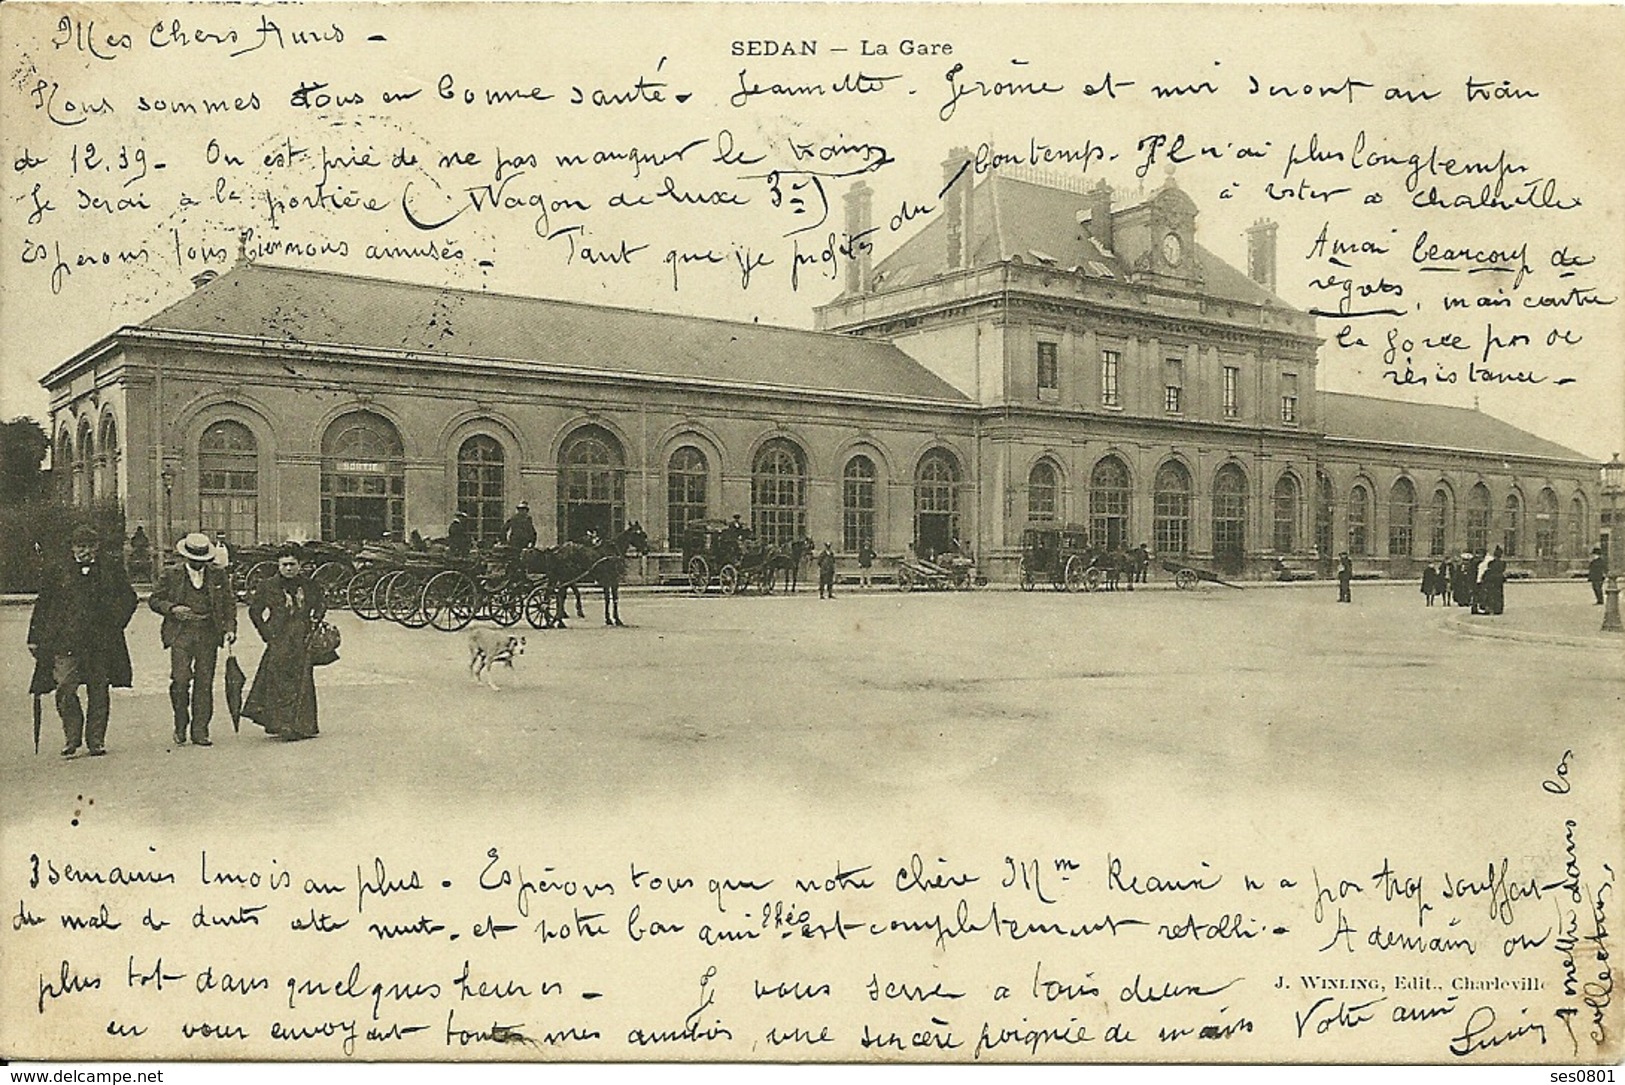 Mes Chers Amis -
SEDAN — La Gare
Nous sommes tous en bonne santé - Jeannette - Jérôme et moi seront au train
de 12.39 - On est prié de ne pas manquer le train
Je serai à la portière (Wagon de luxe 3e)
Espérons tous bien nous amusés - Tant que je profites du bon temps - Il n'ai plus longtemps
à rester a Charleville
Aurai beaucoup de
régrets, mais contre
la force pas de
résistance -
SORTIE
3 semaines 1 mois au plus - Espérons tous que notre chère Mm Reaux n a pas trop souffert
du mal de dents cette nuit - et notre bon ami Théo est complètement retabli - A demain ou
plus tot dans quelques heures - Je vous serre a tous deux
J. WINLING, Edit., Charleville
en vous envoyant toutes mes amitiés, une sincère poignée de mains Votre ami
A mettre dans la
collection.
ses0801